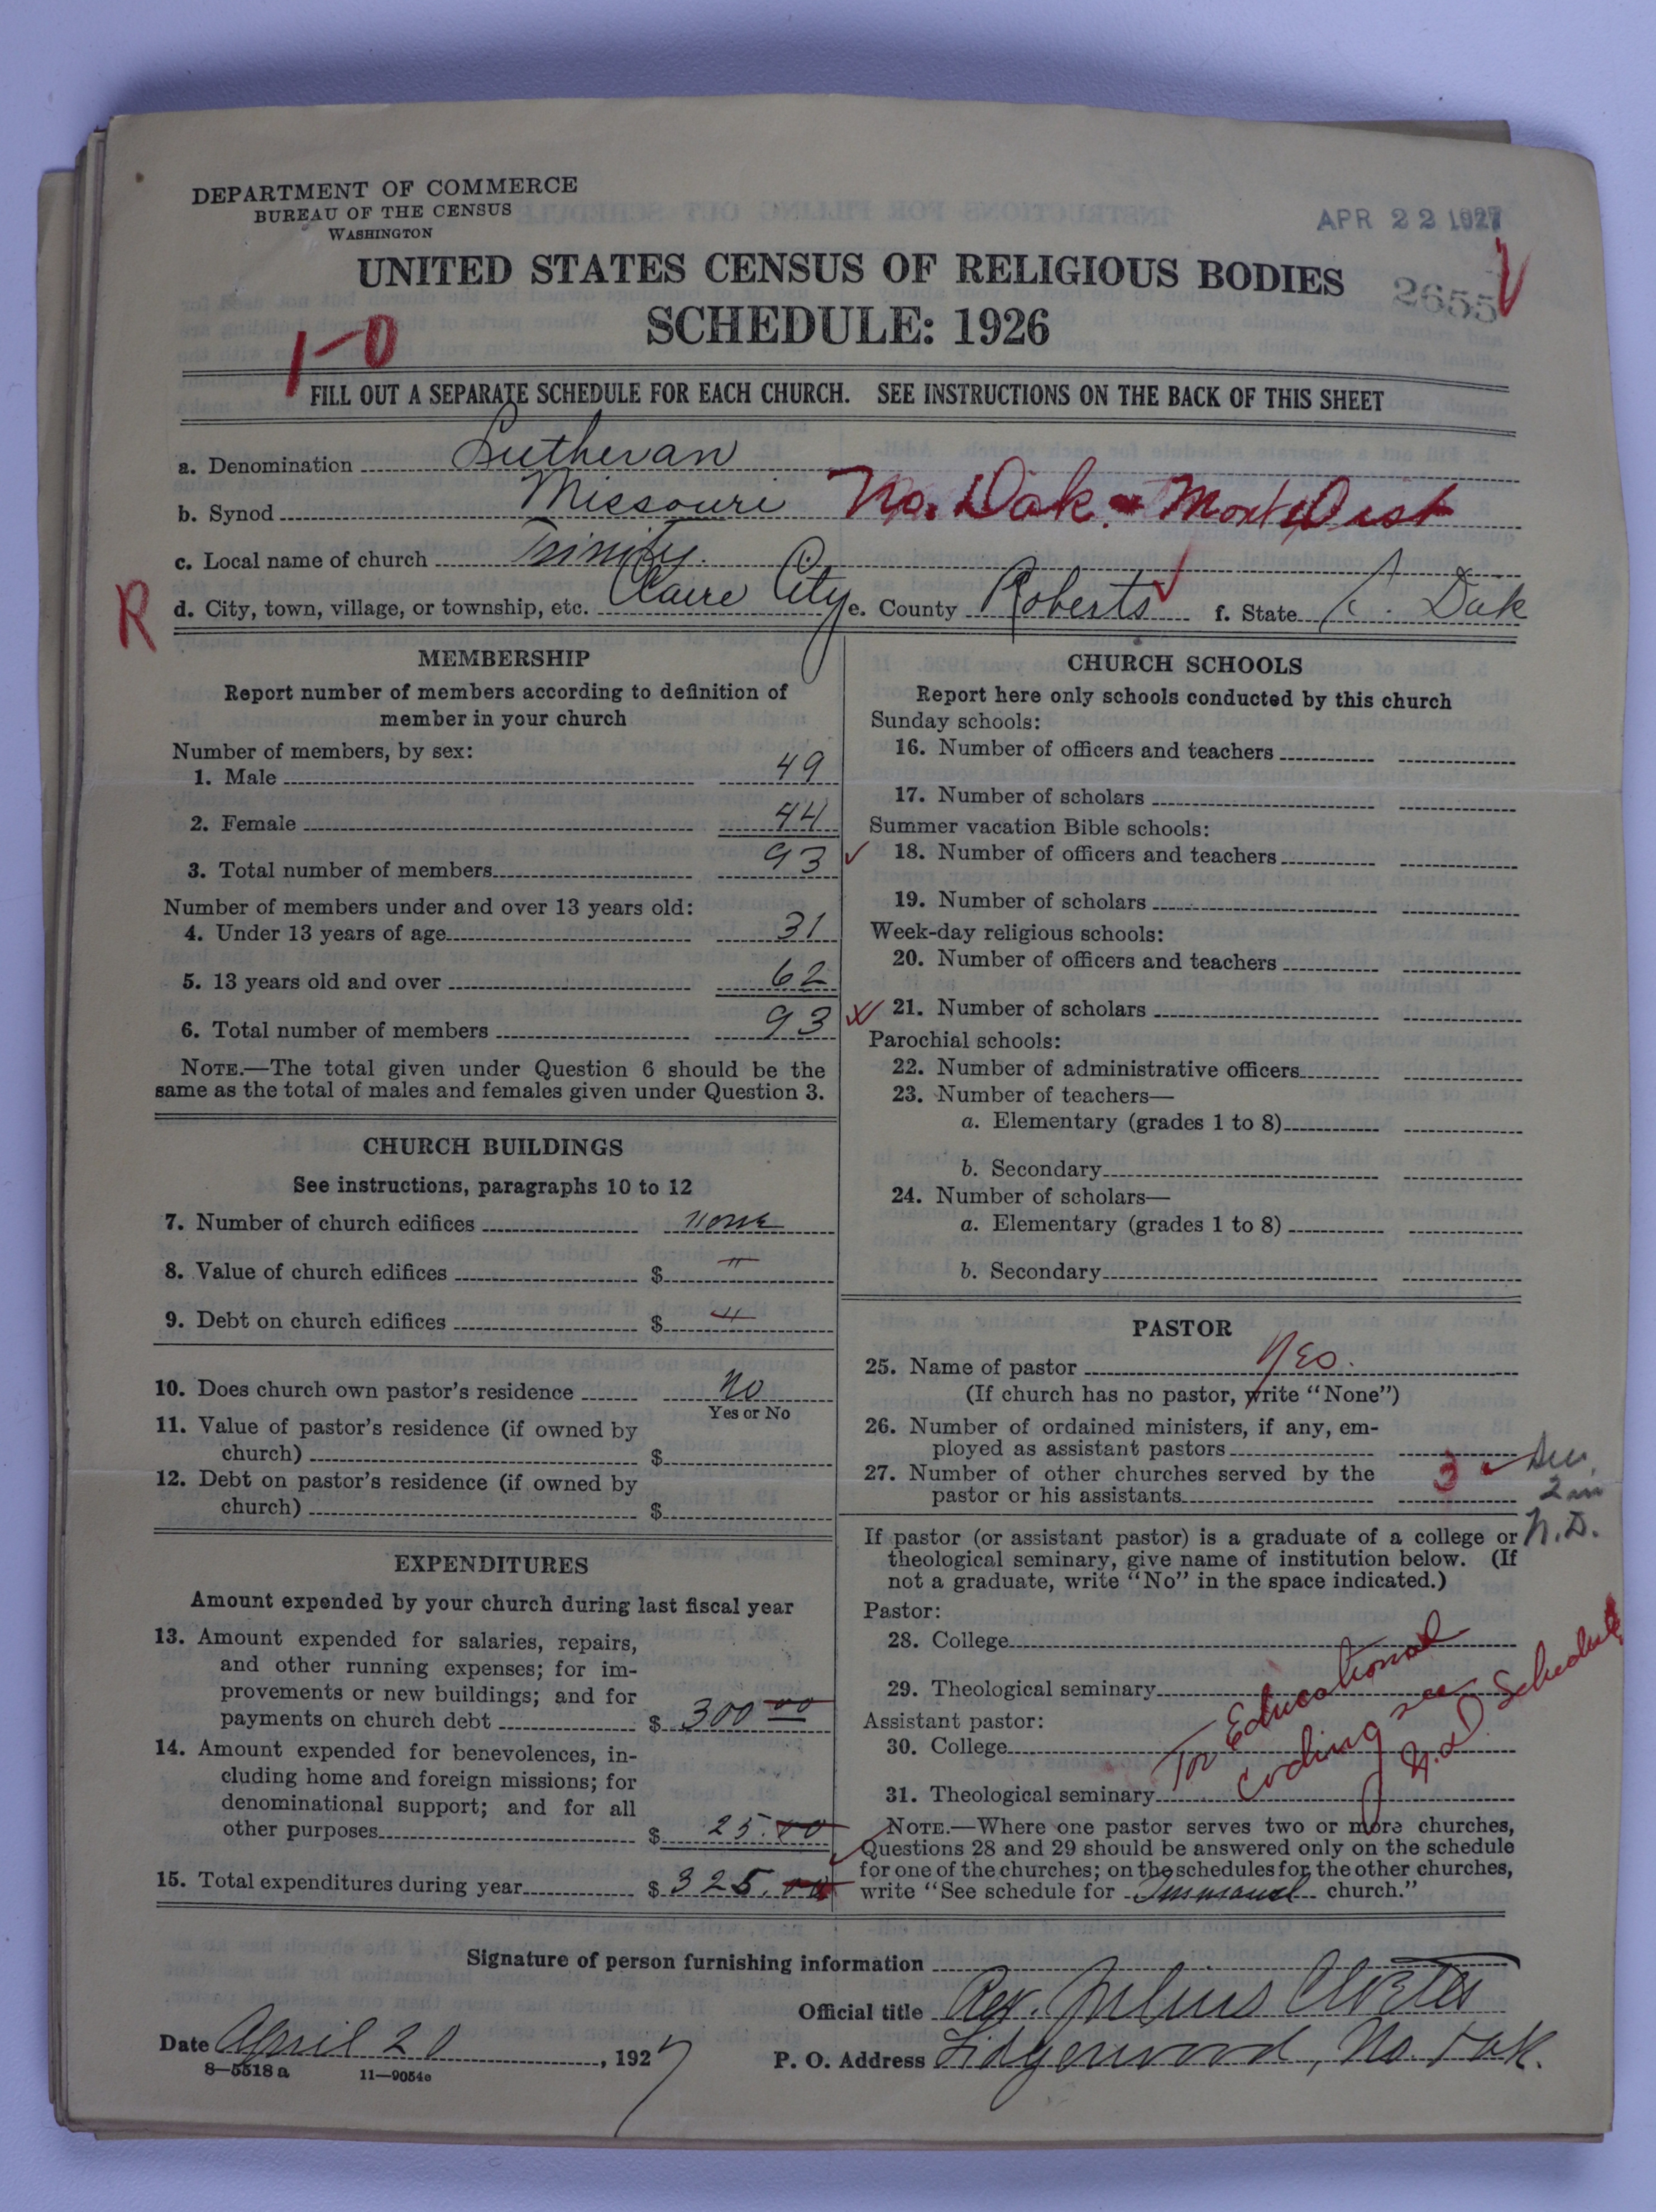 DEPARTMENT OF COMMERCE
BUREAU OF THE CENSUS
WASHINGTON
APR 22 1927
UNITED STATES CENSUS OF RELIGIOUS BODIES
2655
SCHEDULE: 1926
1-0
FILL OUT A SEPARATE SCHEDULE FOR EACH CHURCH. SEE INSTRUCTIONS ON THE BACK OF THIS SHEET
a. Denomination Lutheran
b. Synod Missouri No. Dak. & Mont Dist
c. Local name of church Trinity.
R
d. City, town, village, or township, etc. Claire City e. County Roberts f. State S. Dak
MEMBERSHIP
Report number of members according to definition of
member in your church
Number of members, by sex:
1. Male 49
2. Female 44
3. Total number of members 93
Number of members under and over 13 years old:
4. Under 13 years of age 31
5. 13 years old and over 62
6. Total number of members 93
NOTE.—The total given under Question 6 should be the
same as the total of males and females given under Question 3.
CHURCH BUILDINGS
See instructions, paragraphs 10 to 12
7. Number of church edifices none
8. Value of church edifices $ "
9. Debt on church edifices $ "
10. Does church own pastor's residence No
Yes or No
11. Value of pastor's residence (if owned by
church) $
12. Debt on pastor's residence (if owned by
church) $
EXPENDITURES
Amount expended by your church during last fiscal year
13. Amount expended for salaries, repairs,
and other running expenses; for im-
provements or new buildings; and for
payments on church debt $ 300 00
14. Amount expended for benevolences, in-
cluding home and foreign missions; for
denominational support; and for all
other purposes $ 25.00
15. Total expenditures during year $ 325.00
CHURCH SCHOOLS
Report here only schools conducted by this church
Sunday schools:
16. Number of officers and teachers
17. Number of scholars
Summer vacation Bible schools:
18. Number of officers and teachers
19. Number of scholars
Week-day religious schools:
20. Number of officers and teachers
21. Number of scholars
Parochial schools:
22. Number of administrative officers
23. Number of teachers—
a. Elementary (grades 1 to 8)
b. Secondary
24. Number of scholars—
a. Elementary (grades 1 to 8)
b. Secondary
PASTOR
25. Name of pastor Yes.
(If church has no pastor, write "None")
26. Number of ordained ministers, if any, em-
ployed as assistant pastors
27. Number of other churches served by the
pastor or his assistants 3
2 in
N.D.
If pastor (or assistant pastor) is a graduate of a college or
theological seminary, give name of institution below. (If
not a graduate, write "No" in the space indicated.)
Pastor:
28. College
29. Theological seminary
Assistant pastor:
30. College
31. Theological seminary
For Educational
coding see
N.D Schedule
NOTE.—Where one pastor serves two or more churches,
Questions 28 and 29 should be answered only on the schedule
for one of the churches; on the schedules for the other churches,
write "See schedule for Immanuel church."
Signature of person furnishing information
Official title Rev. Julius
Date April 20, 1927
P. O. Address Lidgerwood, No. Dak.
8—5518 a 11—9054e